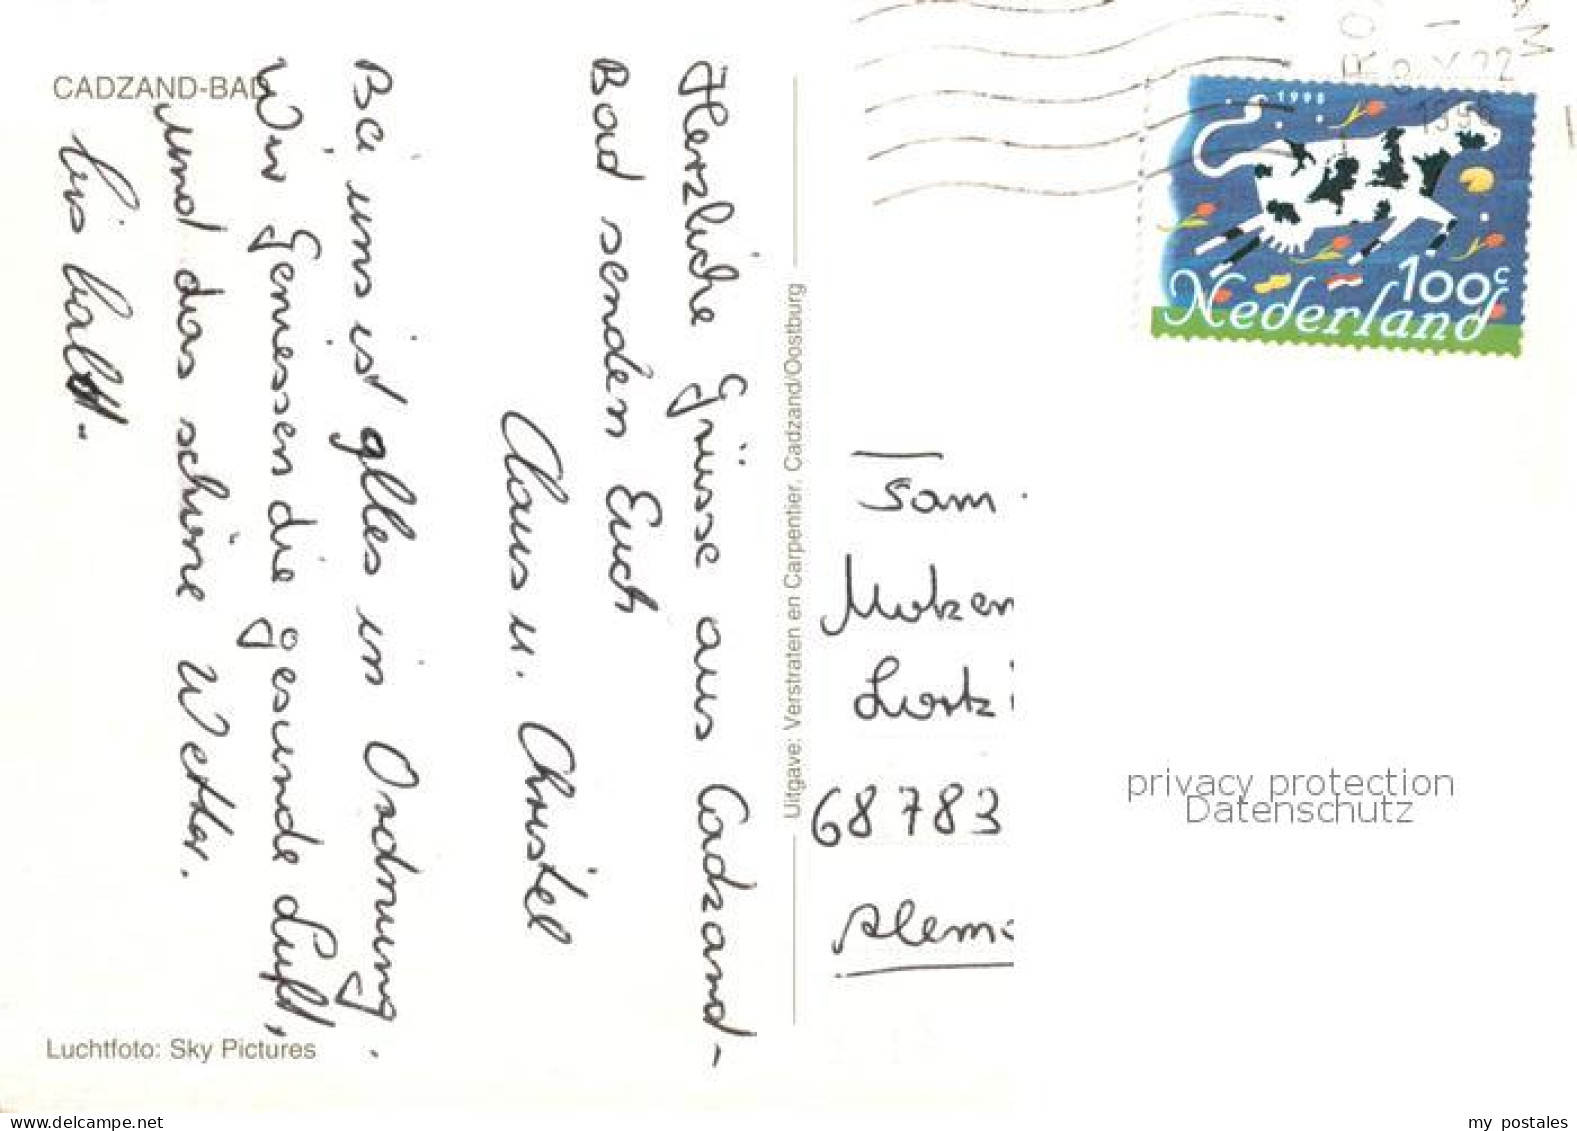 CADZAND-BAD
Herzliche Grüsse aus Cadzand-
Bad senden Euch
Claus u. Christel
Bei uns ist alles in Ordnung.
Wir Genuessen die gesunde Luft,
und das schöne Wetter.
bis bald.
Luchtfoto: Sky Pictures
Uitgave: Verstraten en Carpentier, Cadzand/Oostburg
1995
1998
100c
Nederland
Fam.
68783
Alem
privacy protection
Datenschutz
www.delcampe.net
my_postales